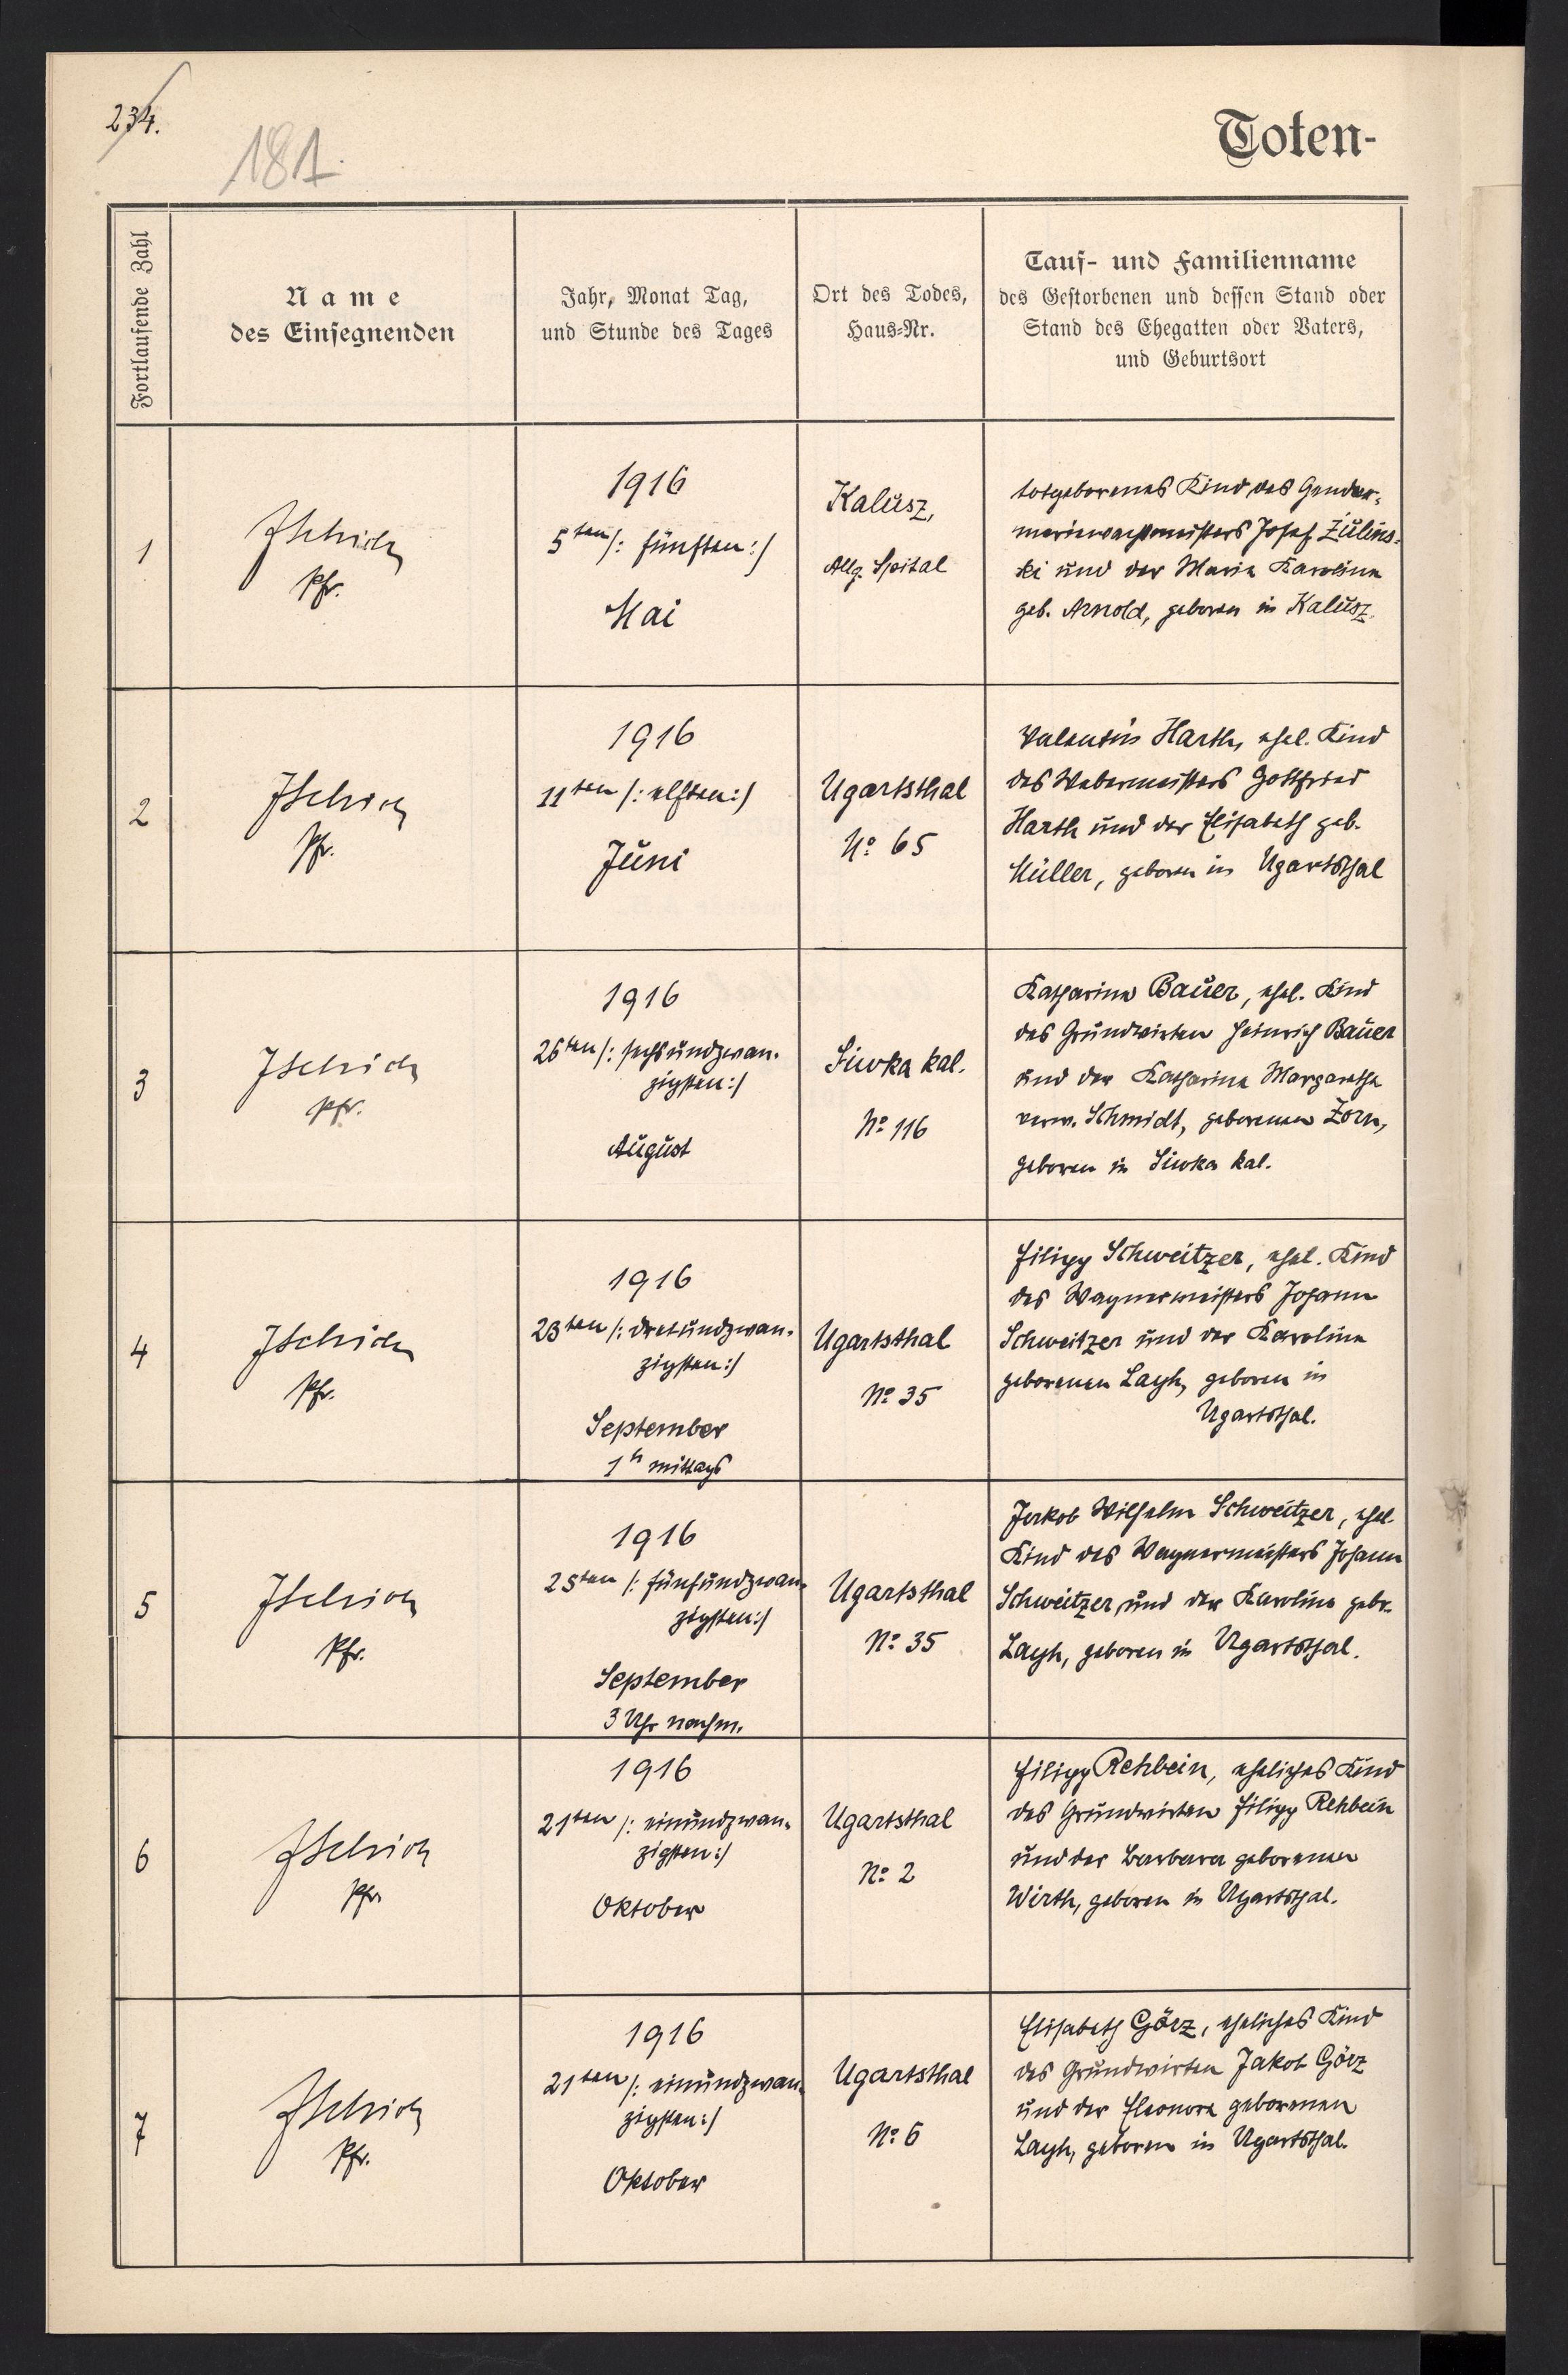 234.
181.
Toten-
Fortlaufende Zahl
Name
des Einsegnenden
Jahr, Monat Tag,
und Stunde des Tages
Ort des Todes,
Haus-Nr.
Tauf- und Familienname
des Gestorbenen und dessen Stand oder
Stand des Ehegatten oder Vaters,
und Geburtsort
1
Pfr.
1916
5ten /: fünften :/
Mai
Kalusz,
Allg. Spital
totgeborenes Kind des Gendar-
meriewachtmeisters Josef Zulins-
ki und der Maria Karolina
geb. Arnold, geboren in Kalusz
2
Pfr.
1916
11ten /: elften :/
Juni
Ugartsthal
No 65
Valentin Harth, ehel. Kind
des Webermeisters Gottfried
Harth und der Elisabeth geb.
Müller, geboren in Ugartsthal
3
Pfr.
1916
26ten /: sechsundzwan-
zigsten :/
August
Siwka kal.
No 116
Katharina Bauer, ehel. Kind
des Grundwirten Heinrich Bauer
und der Katharina Margaretha
verw. Schmidt, geborenen Zorn,
geboren in Siwka kal.
4
Pfr.
1916
23ten /: dreiundzwan-
zigsten :/
September
1h mittags
Ugartsthal
No 35
Filipp Schweitzer, ehel. Kind
des Wagnermeisters Johann
Schweitzer und der Karolina
geborenen Layh, geboren in
Ugartsthal.
5
Pfr.
1916
25ten /: fünfundzwan-
zigsten :/
September
3 Uhr nachm.
Ugartsthal
No 35
Jakob Wilhelm Schweitzer, ehel.
Kind des Wagnermeisters Johann
Schweitzer und der Karolina geb.
Layh, geboren in Ugartsthal.
6
Pfr.
1916
21ten /: einundzwan-
zigsten :/
Oktober
Ugartsthal
No 2
Filipp Rehbein, eheliches Kind
des Grundwirten Filipp Rehbein
und der Barbara geborenen
Wirth, geboren in Ugartsthal.
7
Pfr.
1916
21ten /: einundzwan-
zigsten :/
Oktober
Ugartsthal
No 6
Elisabeth Görz, eheliches Kind
des Grundwirten Jakob Görz
und der Eleonora geborenen
Layh, geboren in Ugartsthal.